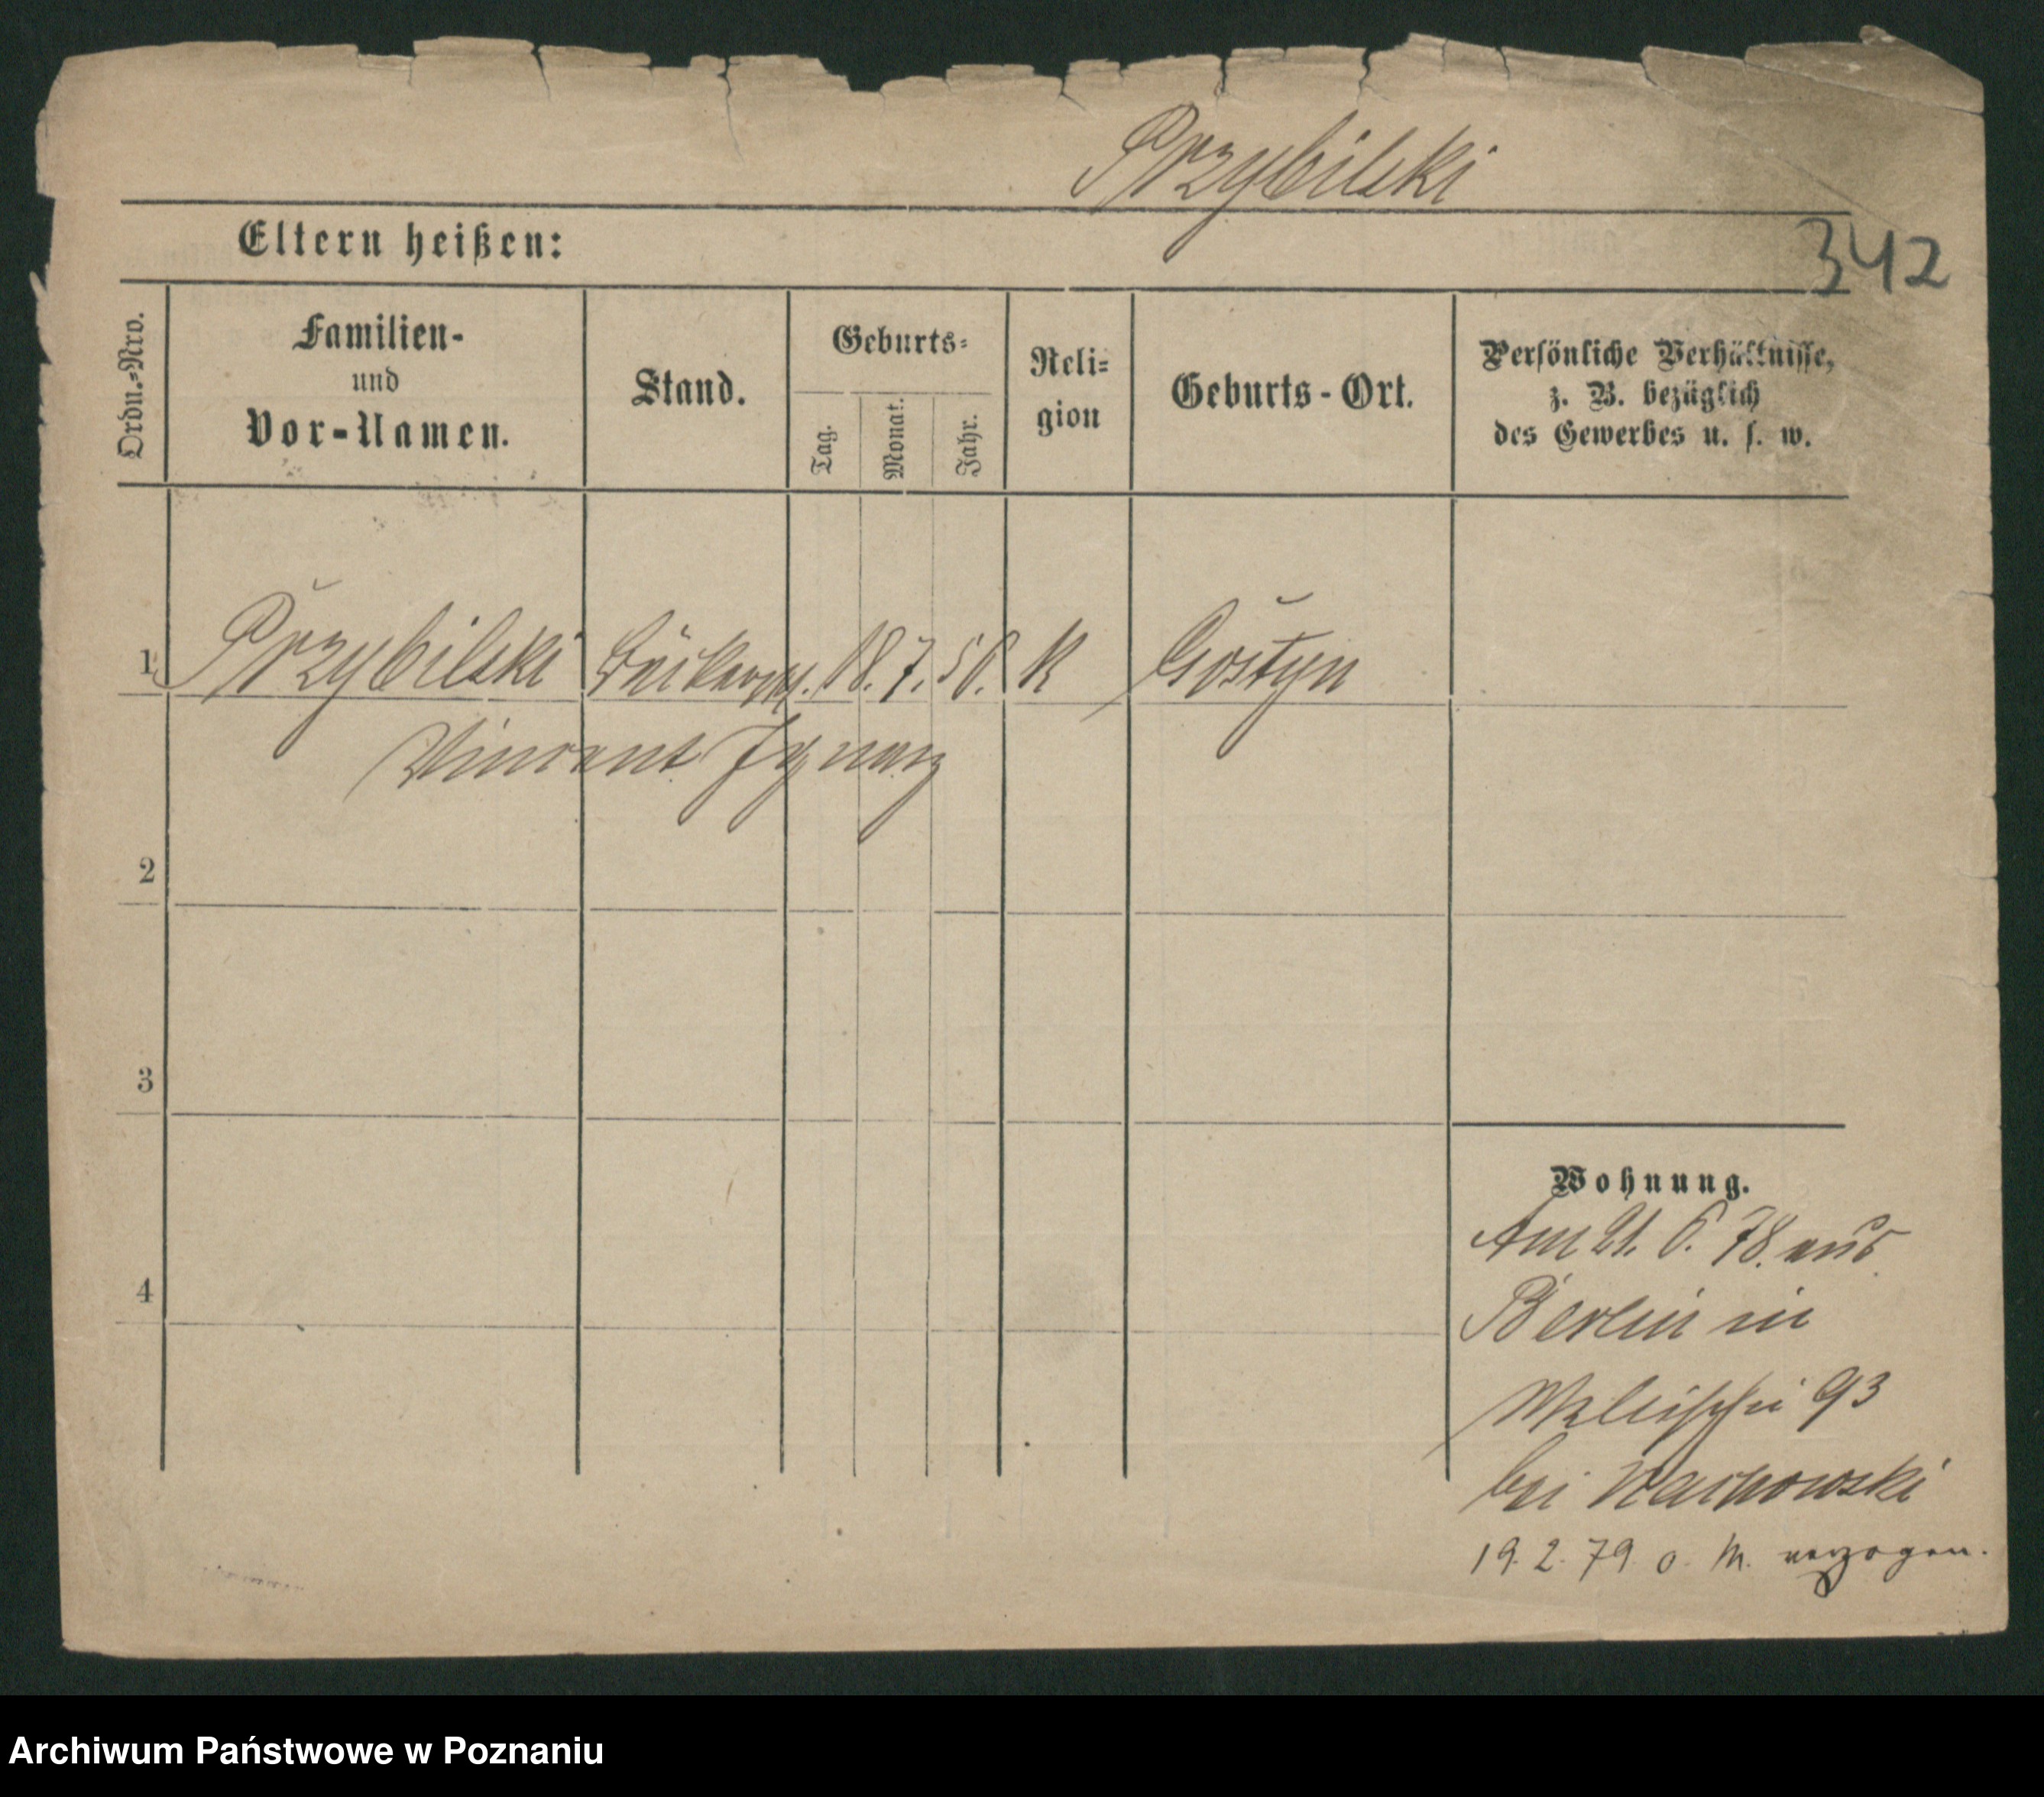 Przybilski
342
Eltern heißen:
Ordn.=Nro.
Familien-
und
Vor-Namen.
Stand.
Geburts=
Tag.
Monat.
Jahr.
Reli=
gion
Geburts-Ort.
Persönliche Verhältnisse,
z. B. bezüglich
des Gewerbes u. s. w.
1 Przybilski 18. 7. K Gostyn
Vincent Ignaz
2
3
4
Wohnung.
Am 21. 6. 78. aus
Berlin in
93
bei
19. 2. 79 o. M. verzogen.
Archiwum Państwowe w Poznaniu